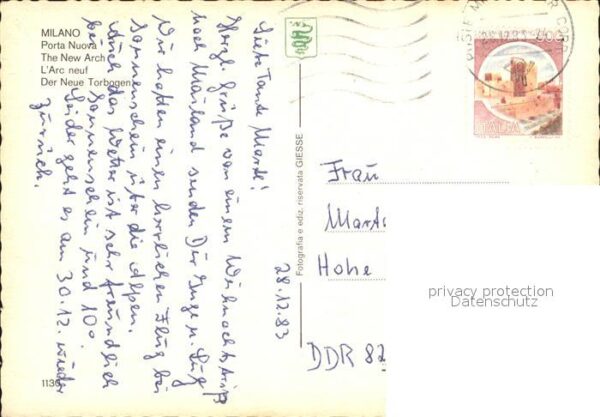 MILANO
Porta Nuova
The New Arch
L'Arc neuf
Der Neue Torbogen
Liebe Tante Marta!
Herzl. Grüße von einem Weihnachtstrip
nach Mailand senden Dir Inge u.
Wir hatten einen herrlichen Flug bei
Sonnenschein über die Alpen.
Auch das Wetter ist sehr freundlich
bei Sonnenschein und 10°.
Leider geht es am 30.12. wieder
zurück.
28.12.83
1136
Fotografia e ediz. riservata GIESSE
28.12.83
ITALIA
Frau
Marta
Hohe
DDR 82
privacy protection
Datenschutz